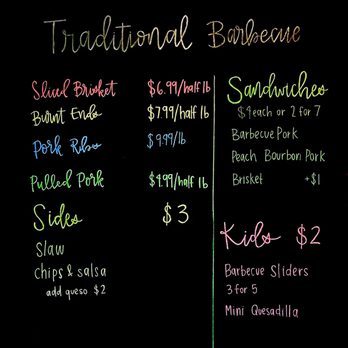 Traditional Barbecue
Sliced Brisket $6.99/half lb
Burnt Ends $7.99/half lb
Pork Ribs $9.99/lb
Pulled Pork $4.99/half lb
Sides $3
Slaw
chips & salsa
add queso $2
Sandwiches
$4 each or 2 for 7
Barbecue Pork
Peach Bourbon Pork
Brisket +$1
Kids $2
Barbecue Sliders
3 for 5
Mini Quesadilla